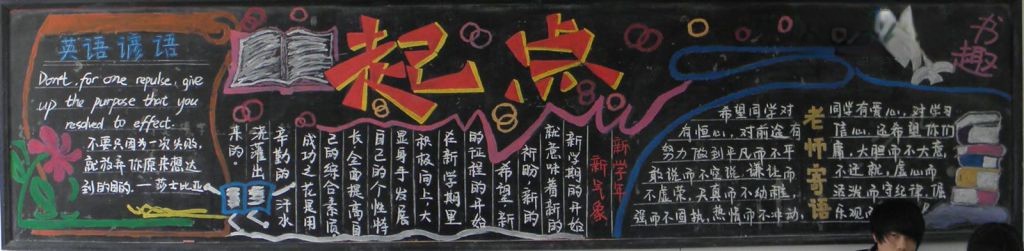 英语谚语
Don't, for one repulse, give
up the purpose that you
resolved to effect.
不要只因为一次失败,
就放弃你原来想达
到的目的。——莎士比亚
起点
新学年
新气象
新学期的开始
就意味着新的
新盼,新的
希望,新
的征程的开始
在新学期里
积极向上大
显身手发展
自己的个性特
长全面提高自
己的综合素质
成功之花是用
辛勤的汗水
浇灌出
来的。
老师寄语
希望同学对
有恒心,对前途有
努力做到平凡而不平
敢说而不空谈,谦让而
不虚荣,天真而不幼稚,
而不固执,热情而不冲动,
同学有爱心,对学习
信心,还希望你们
庸,大胆而不大意,
不迁就,虚心而
活泼而守纪律,倔
乐观而
书趣